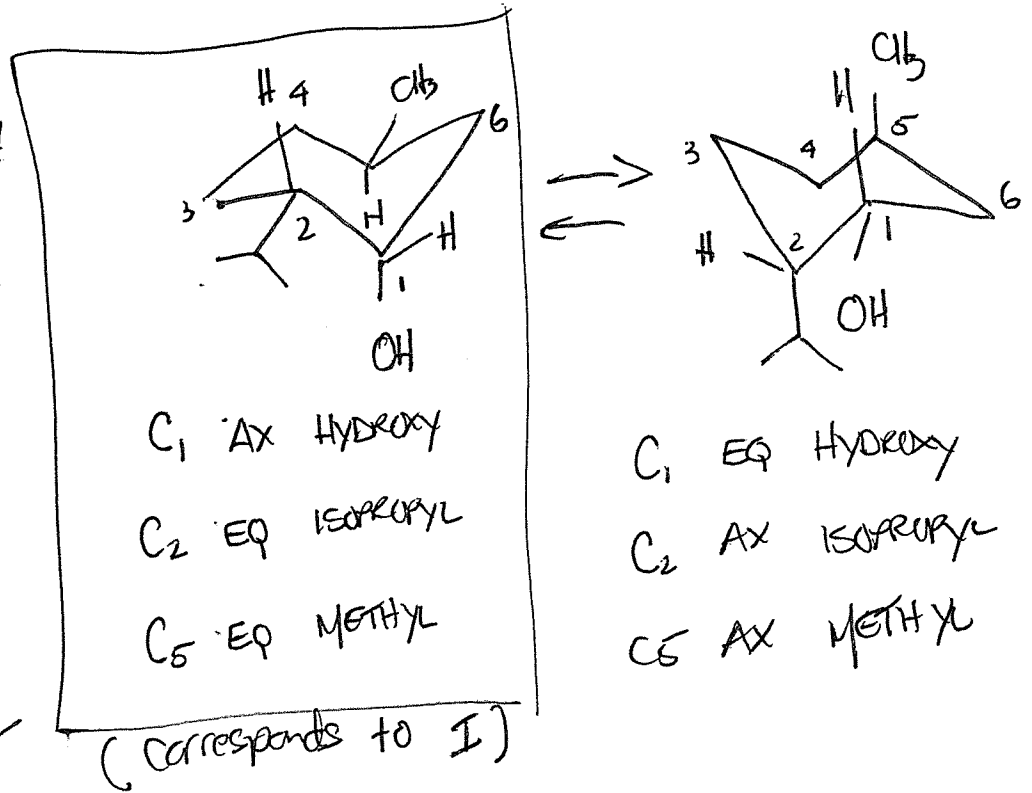 H 4 CH3
6
3
2 H H
1
OH
C1 AX HYDROXY
C2 EQ ISOPROPYL
C5 EQ METHYL
(corresponds to I)
CH3
H
3 4 5
6
H 2 1
OH
C1 EQ HYDROXY
C2 AX ISOPROPYL
C5 AX METHYL